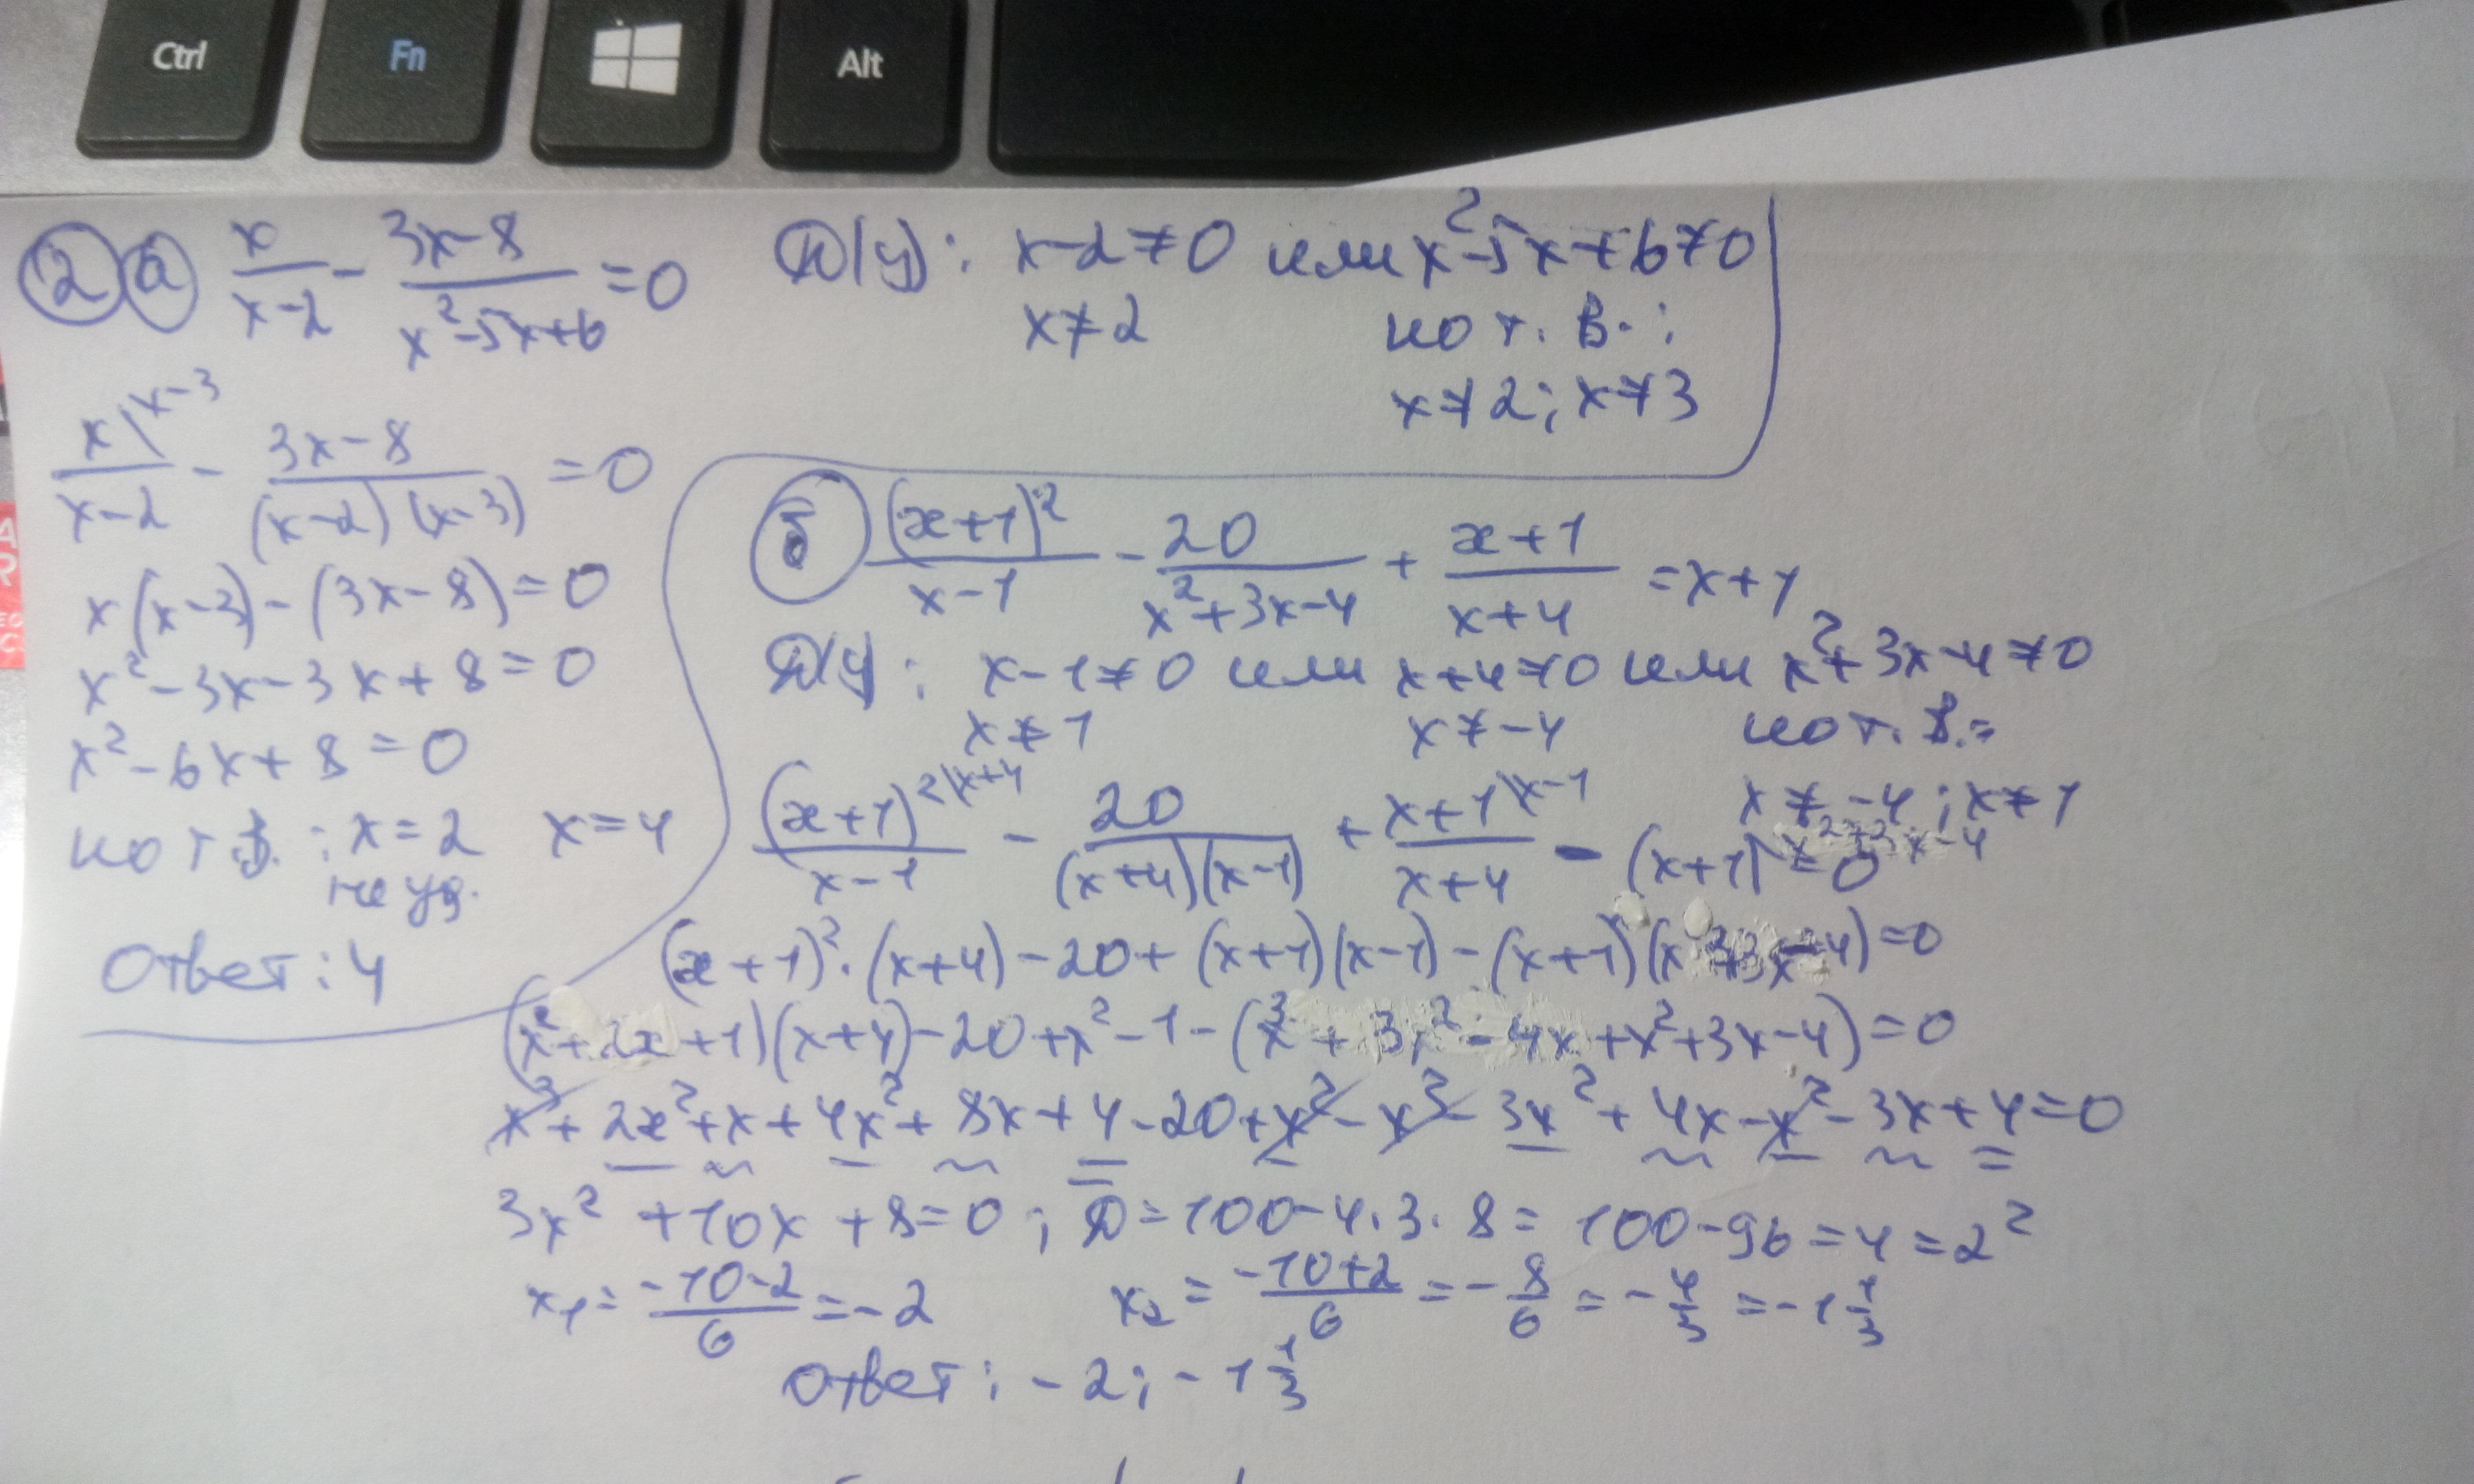 Ctrl Fn Alt
2 а x/(x-2) - (3x-8)/(x²-5x+6) = 0
D(y): x-2≠0 или x²-5x+6≠0
x≠2 по т. В.:
x≠2; x≠3
x\x-3/(x-2) - (3x-8)/((x-2)(x-3)) = 0
x(x-3)-(3x-8)=0
x²-3x-3x+8=0
x²-6x+8=0
по т В.: x=2 x=4
не уд.
Ответ: 4
б (x+1)²/(x-1) - 20/(x²+3x-4) + (x+1)/(x+4) = x+1
D(y): x-1≠0 или x+4≠0 или x²+3x-4≠0
x≠1 x≠-4 по т. В.:
x≠-4; x≠1
(x+1)²\x+4/(x-1) - 20/((x+4)(x-1)) + x+1\x-1/(x+4) - (x+1)\x²+3x-4 = 0
(x+1)²·(x+4)-20+(x+1)(x-1)-(x+1)(x²+3x-4)=0
(x²+2x+1)(x+4)-20+x²-1-(x³+3x²-4x+x²+3x-4)=0
x³+2x²+x+4x²+8x+4-20+x²-x³-3x²+4x-x²-3x+4=0
3x²+10x+8=0; D=100-4·3·8=100-96=4=2²
x₁=(-10-2)/6=-2 x₂=(-10+2)/6=-8/6=-4/3=-1 1/3
Ответ: -2; -1 1/3